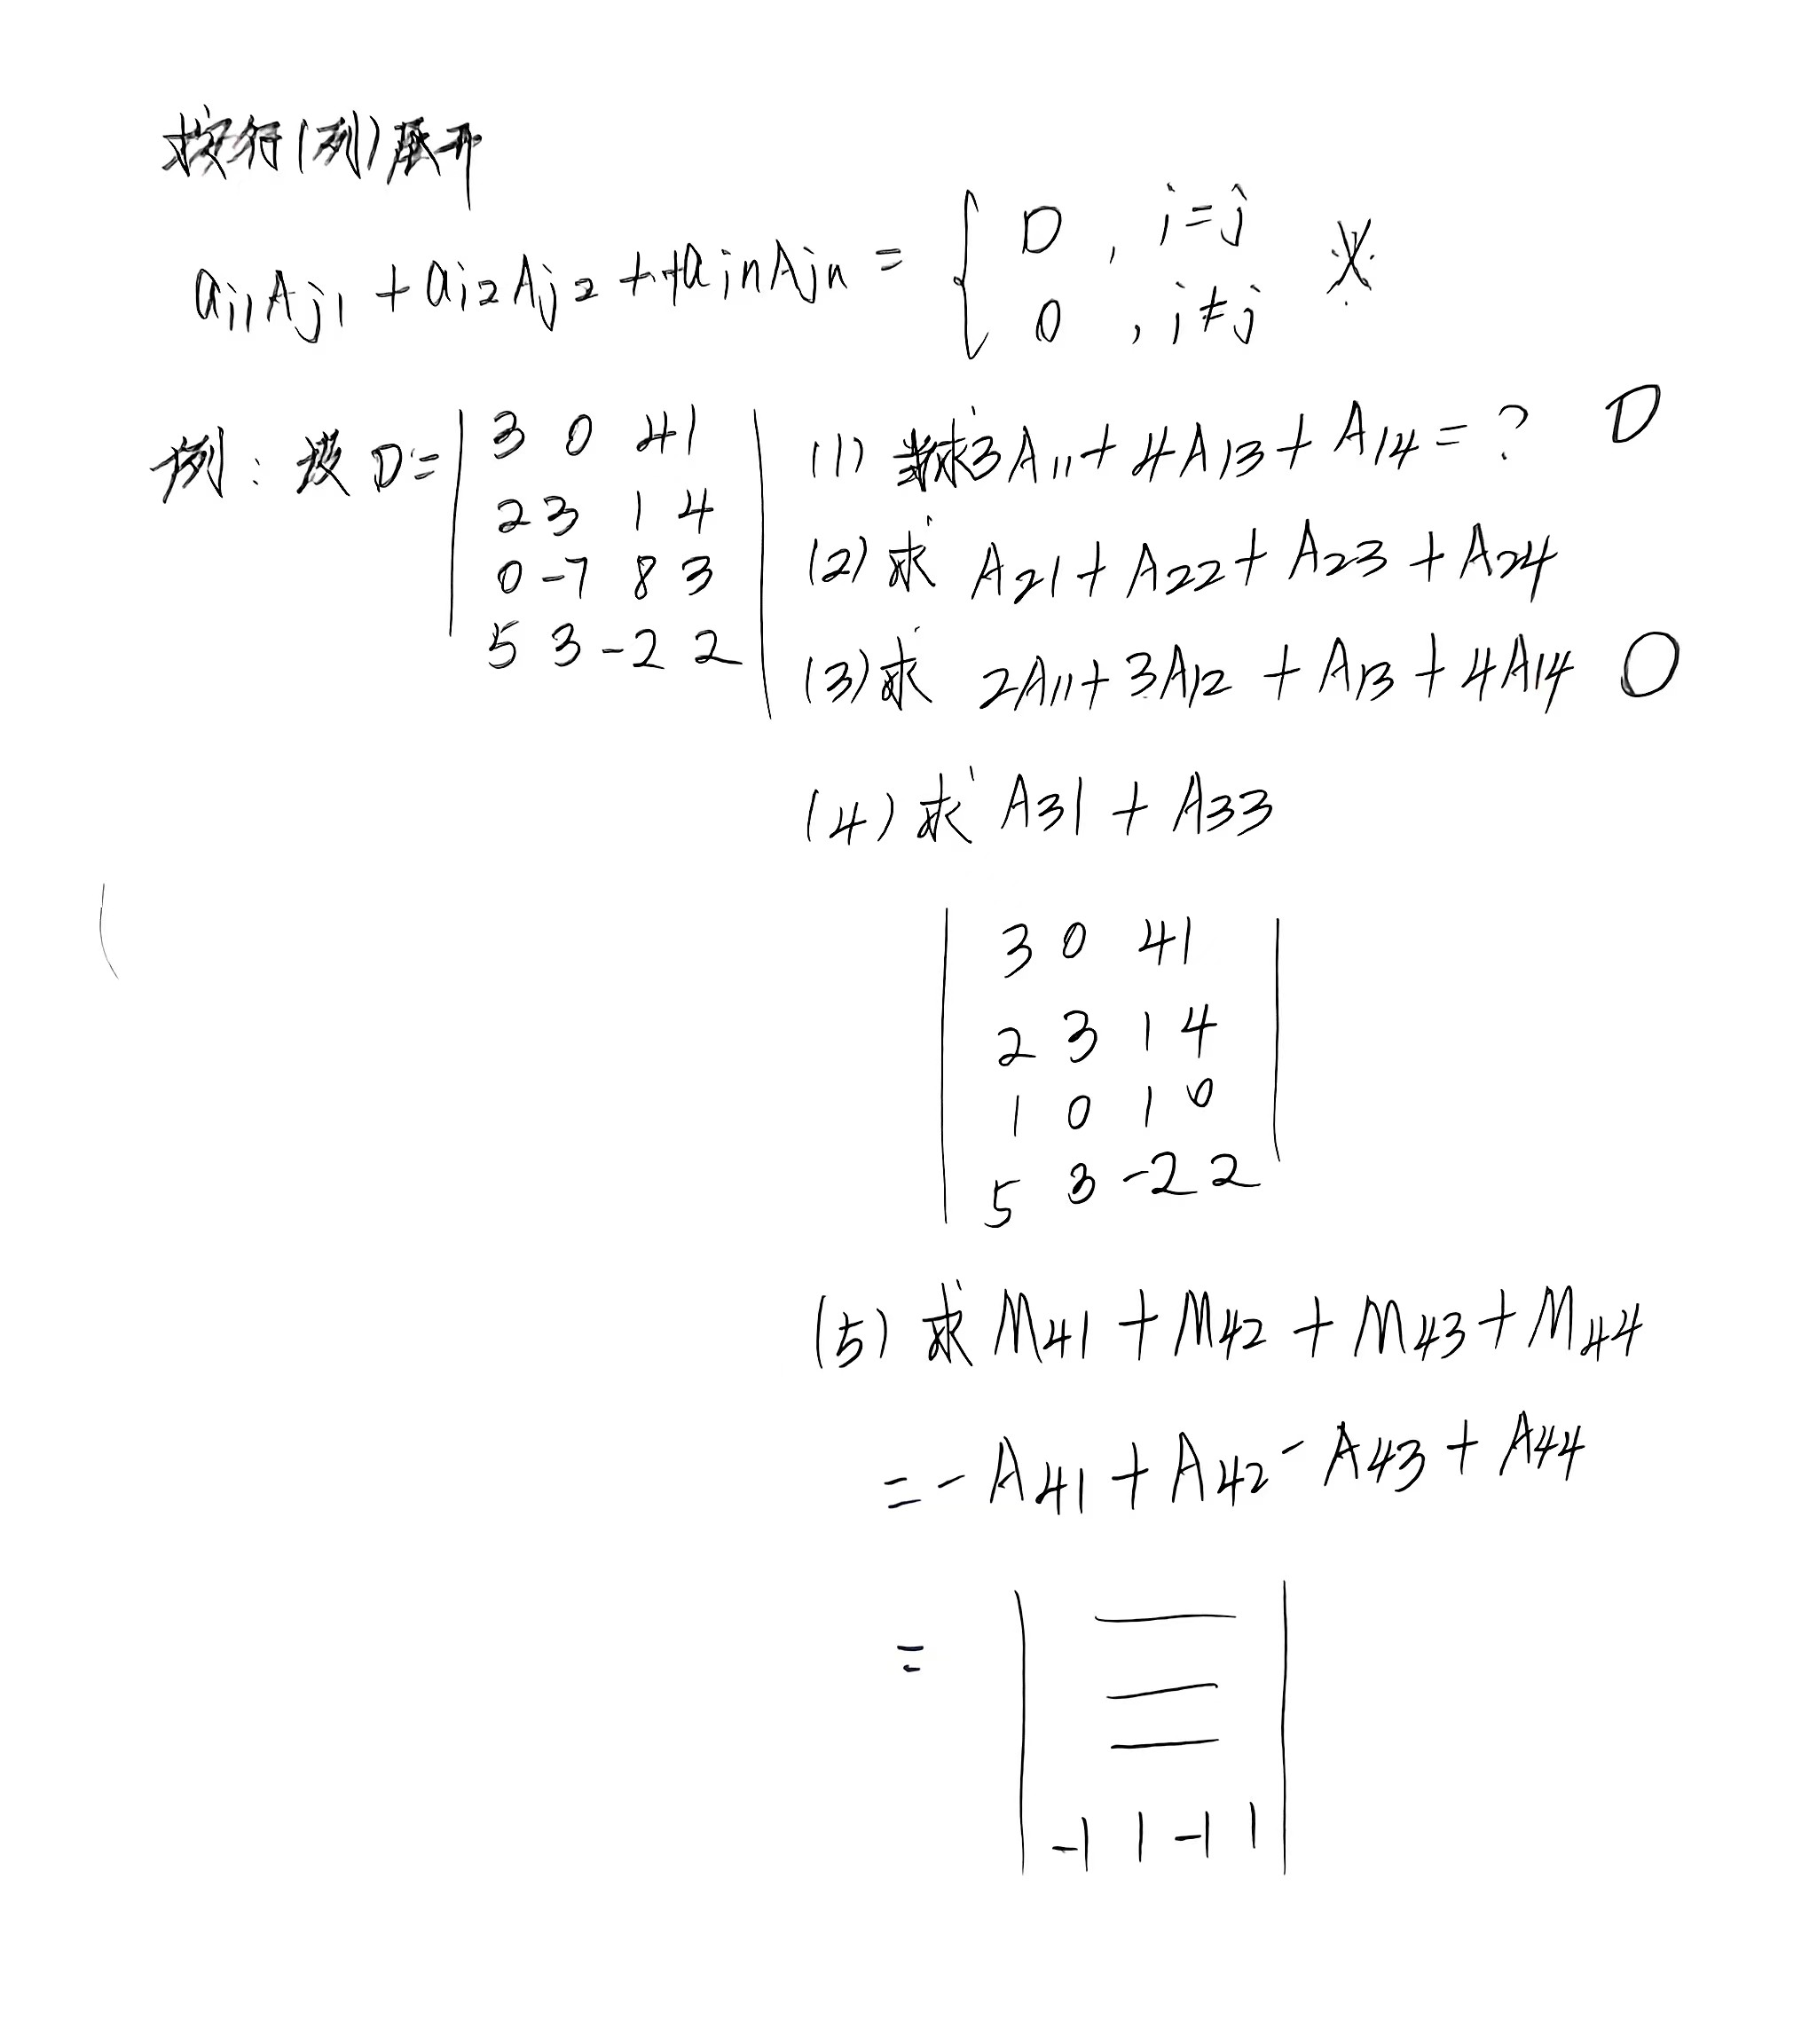 按行(列)展开
ai1Aj1 + ai2Aj2 + ‥ + ainAjn = { D , i=j
0 , i≠j ※
例: 设 D = | 3 0 4 1 |
2 3 1 4
0 -7 8 3
5 3 -2 2
(1) 求3A11 + 4A13 + A14 = ? D
(2) 求 A21 + A22 + A23 + A24
(3) 求 2A11 + 3A12 + A13 + 4A14 0
(4) 求 A31 + A33
| 3 0 4 1 |
2 3 1 4
1 0 1 0
5 3 -2 2
(5) 求 M41 + M42 + M43 + M44
= -A41 + A42 - A43 + A44
= | — |
—
—
-1 1 -1 1